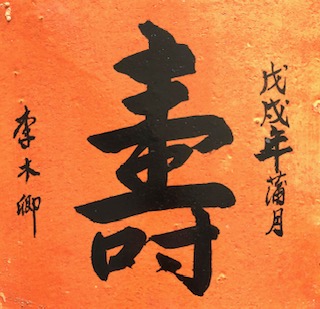 戊戌年蒲月
壽
李木卿